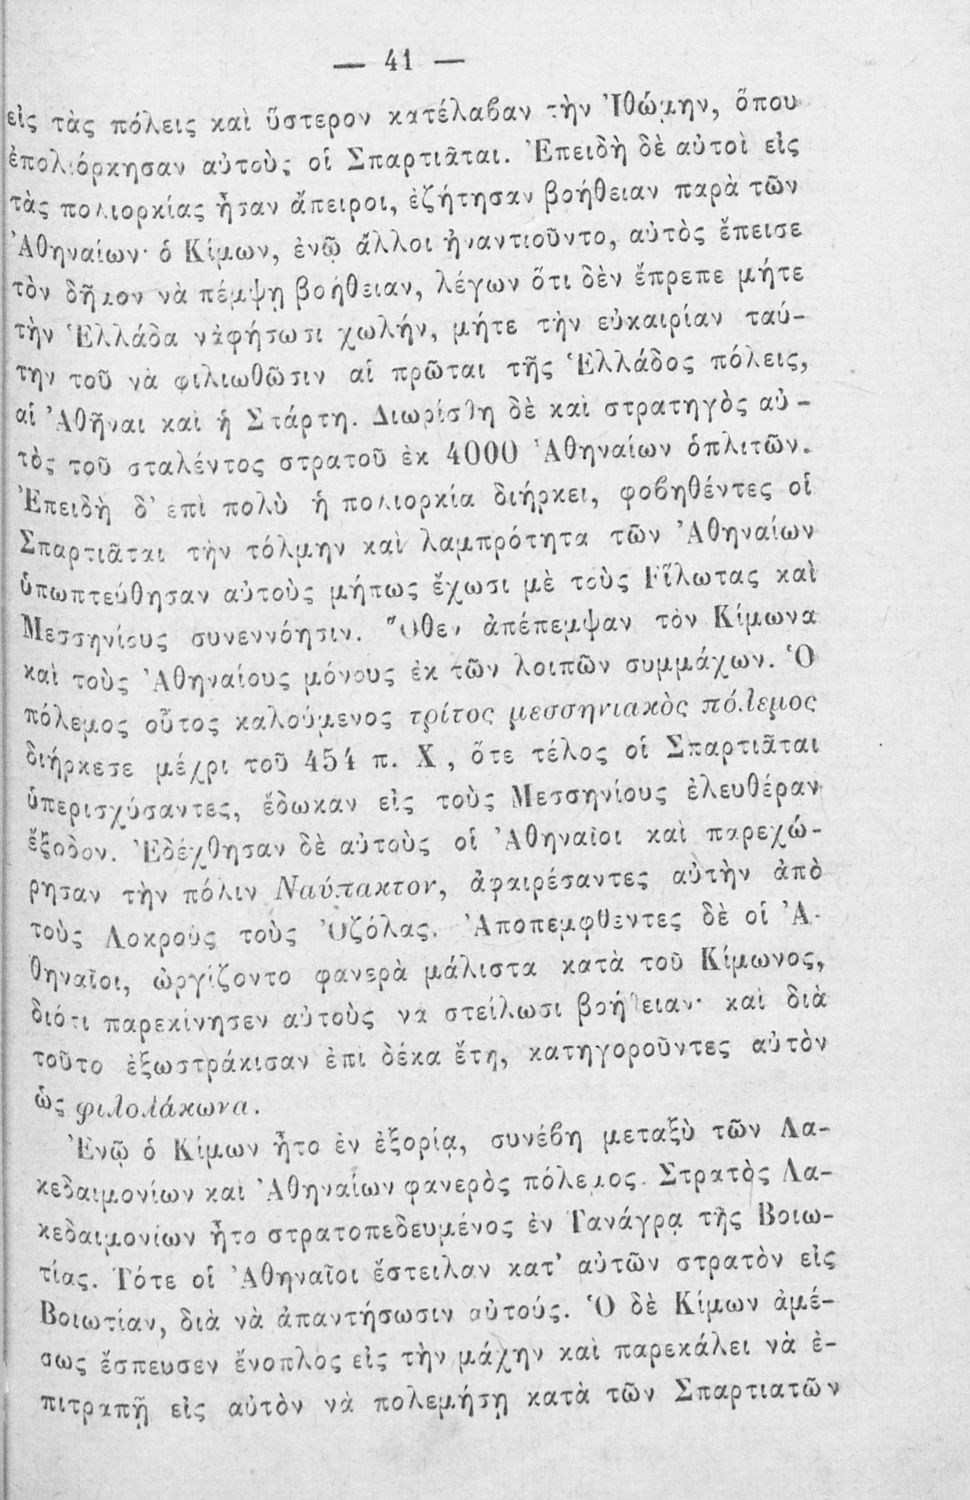 — 41 —
εἰς τὰς πόλεις καὶ ὕστερον κατέλαβαν τὴν Ἰθώμην, ὅπου
ἐπολιόρκησαν αὐτοὺς οἱ Σπαρτιᾶται. Ἐπειδὴ δὲ αὐτοὶ εἰς
τὰς πολιορκίας ἦσαν ἄπειροι, ἐζήτησαν βοήθειαν παρὰ τῶν
Ἀθηναίων· ὁ Κίμων, ἐνῷ ἄλλοι ἠναντιοῦντο, αὐτὸς ἔπεισε
τὸν δῆμον νὰ πέμψῃ βοήθειαν, λέγων ὅτι δὲν ἔπρεπε μήτε
τὴν Ἑλλάδα νἀφήσωσι χωλήν, μήτε τὴν εὐκαιρίαν ταύ-
την τοῦ νὰ φιλιωθῶσιν αἱ πρῶται τῆς Ἑλλάδος πόλεις,
αἱ Ἀθῆναι καὶ ἡ Σπάρτη. Διωρίσθη δὲ καὶ στρατηγὸς αὐ-
τὸς τοῦ σταλέντος στρατοῦ ἐκ 4000 Ἀθηναίων ὁπλιτῶν.
Ἐπειδὴ δ' ἐπὶ πολὺ ἡ πολιορκία διήρκει, φοβηθέντες οἱ
Σπαρτιᾶται τὴν τόλμην καὶ λαμπρότητα τῶν Ἀθηναίων
ὑπωπτεύθησαν αὐτοὺς μήπως ἔχωσι μὲ τοὺς Εἵλωτας καὶ
Μεσσηνίους συνεννόησιν. Ὅθεν ἀπέπεμψαν τὸν Κίμωνα
καὶ τοὺς Ἀθηναίους μόνους ἐκ τῶν λοιπῶν συμμάχων. Ὁ
πόλεμος οὗτος καλούμενος τρίτος μεσσηνιακὸς πόλεμος
διήρκεσε μέχρι τοῦ 454 π. Χ, ὅτε τέλος οἱ Σπαρτιᾶται
ὑπερισχύσαντες, ἔδωκαν εἰς τοὺς Μεσσηνίους ἐλευθέραν
ἔξοδον. Ἐδέχθησαν δὲ αὐτοὺς οἱ Ἀθηναῖοι καὶ παρεχώ-
ρησαν τὴν πόλιν Ναύπακτον, ἀφαιρέσαντες αὐτὴν ἀπὸ
τοὺς Λοκροὺς τοὺς Ὀζόλας. Ἀποπεμφθεντες δὲ οἱ Ἀ-
θηναῖοι, ὠργίζοντο φανερὰ μάλιστα κατὰ τοῦ Κίμωνος,
διότι παρεκίνησεν αὐτοὺς νὰ στείλωσι βοήθειαν· καὶ διὰ
τοῦτο ἐξωστράκισαν ἐπὶ δέκα ἔτη, κατηγοροῦντες αὐτὸν
ὡς φιλολάκωνα.
Ἐνῷ ὁ Κίμων ἦτο ἐν ἐξορίᾳ, συνέβη μεταξὺ τῶν Λα-
κεδαιμονίων καὶ Ἀθηναίων φανερὸς πόλεμος. Στρατὸς Λα-
κεδαιμονίων ἦτο στρατοπεδευμένος ἐν Τανάγρᾳ τῆς Βοιω-
τίας. Τότε οἱ Ἀθηναῖοι ἔστειλαν κατ' αὐτῶν στρατὸν εἰς
Βοιωτίαν, διὰ νὰ ἀπαντήσωσιν αὐτούς. Ὁ δὲ Κίμων ἀμέ-
σως ἔσπευσεν ἔνοπλος εἰς τὴν μάχην καὶ παρεκάλει νὰ ἐ-
πιτραπῇ εἰς αὐτὸν νὰ πολεμήσῃ κατὰ τῶν Σπαρτιατῶν